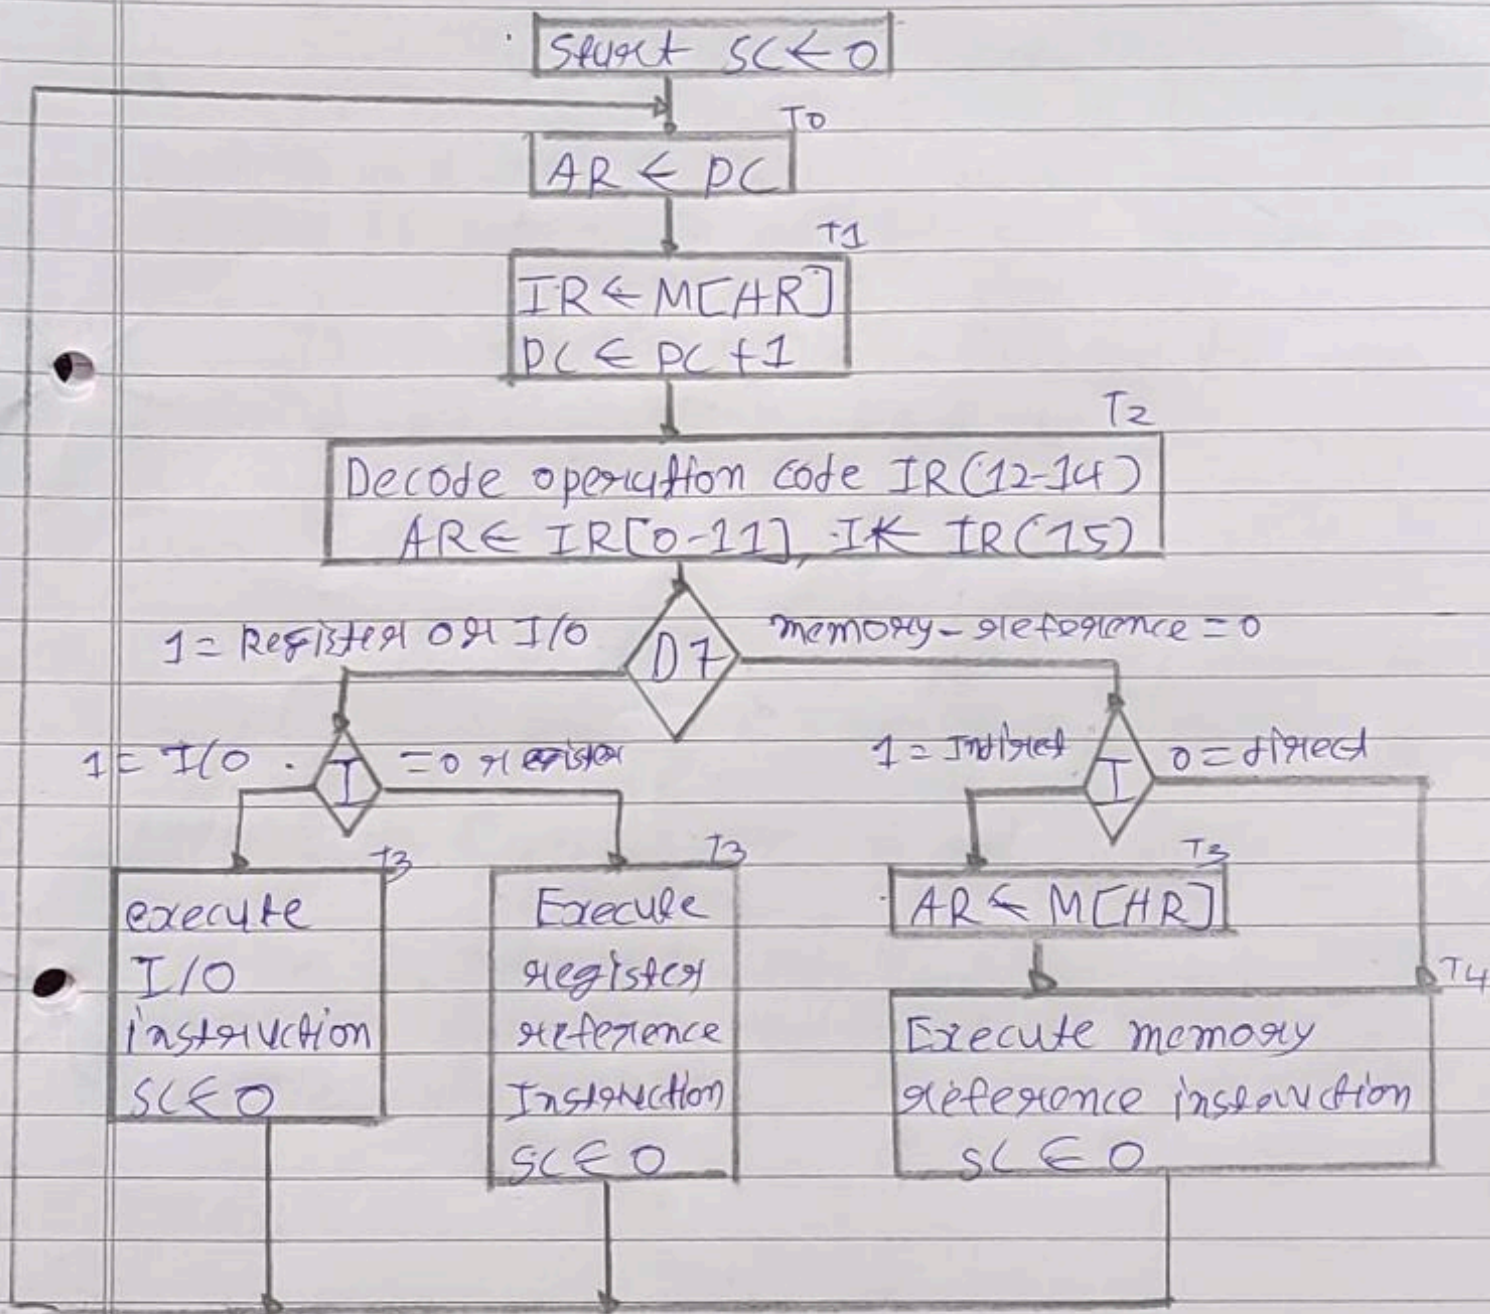 Start SC ← 0
T0
AR ← PC
T1
IR ← M[AR]
PC ← PC +1
T2
Decode operation code IR(12-14)
AR ← IR[0-11], I ← IR(15)
1 = Register or I/O
D7
memory - reference = 0
1 = I/O
I
= 0 register
1 = Indirect
I
0 = direct
T3
execute
I/O
instruction
SC ← 0
T3
Execute
register
reference
Instruction
SC ← 0
T3
AR ← M[AR]
T4
Execute memory
reference instruction
SC ← 0